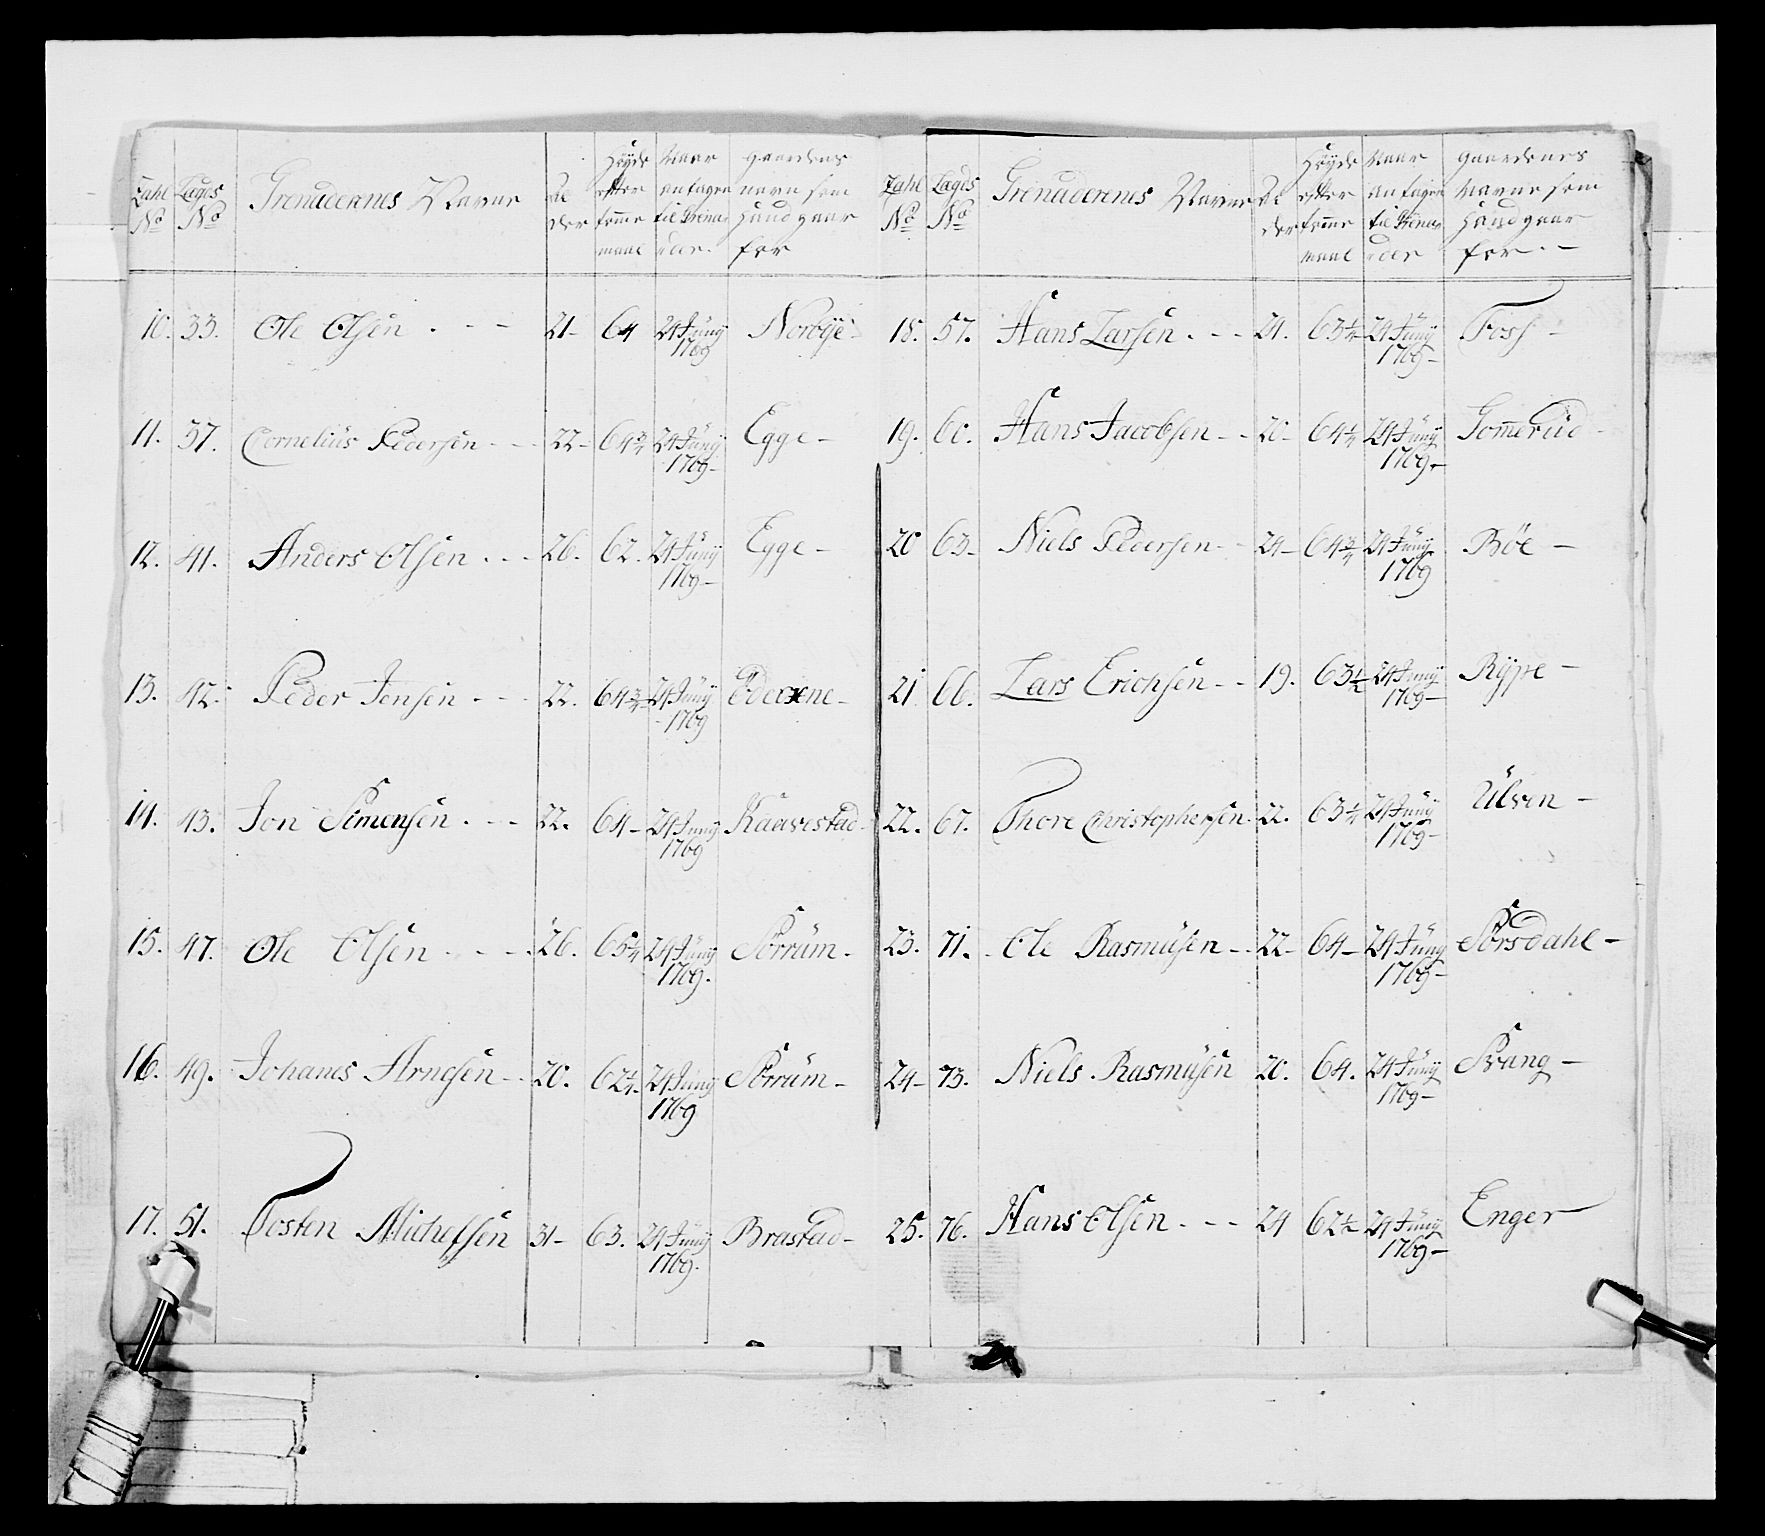 Zahl No
Lægds No
Grenaderernes Navne
Al der
Høyde efter tomme maal
Naar antagen til Grena der.
gaardens navn som Hand gaar for
10. 33. Ole Olsen . - - 21- 64 24 Juny 1769 Norbÿe-
11. 37. Cornelius Pedersen - - - 22- 64 3/4 24 Juny 1769- Egge-
12. 41. Anders Olsen . . . 26. 62. 24 Juny 1769- Egge-
13. 42. Peder Jensen - - - 22. 64 3/4 24 Juny 1769
14. 43. Jon Simensen . - - 22. 64- 24 Juny 1769 Kaavestad-
15. 47. Ole Olsen . - - - 26. 65 1/4 24 Juny 1769. Sørrum-
16. 49. Johanes Arnesen - - 20. 62 1/4. 24 Juny 1769 Sørrum-
17. 51. Tosten Michelsen 31- 63. 24 Juny 1769. Brastad-
Zahl No
Lægds No
Grenaderenes Navne
Al der
Høyde efter tomme maal
Naar antagen til Grena der
gaardenes Navne som Hand gaar for. -
18. 57. Hans Larsen . - - 21. 63 1/4- 24 Juny 1769- Foss-
19. 60. Hans Jacobsen - - 20- 64 1/4 24 Juny 1769- Gomerud-
20 63- Niels Pedersen - - 24- 64 3/4 24 Juny 1769 Böe-
21 66. Lars Erichsen - - 19. 63 1/2 24 Juny 1769- Rÿpe-
22. 67. Thore Christophersen- 22. 63 1/4 24 Juny 1769- Ulven-
23. 71. Ole Rasmusen - - 22- 64- 24 Juny 1769- Sørsdahl-
24- 73. Niels Rasmusen 20. 64. 24 Juny 1769- Svang-
25. 76. Hans Olsen . - - 24 62 1/2 24 Juny 1769- Enger